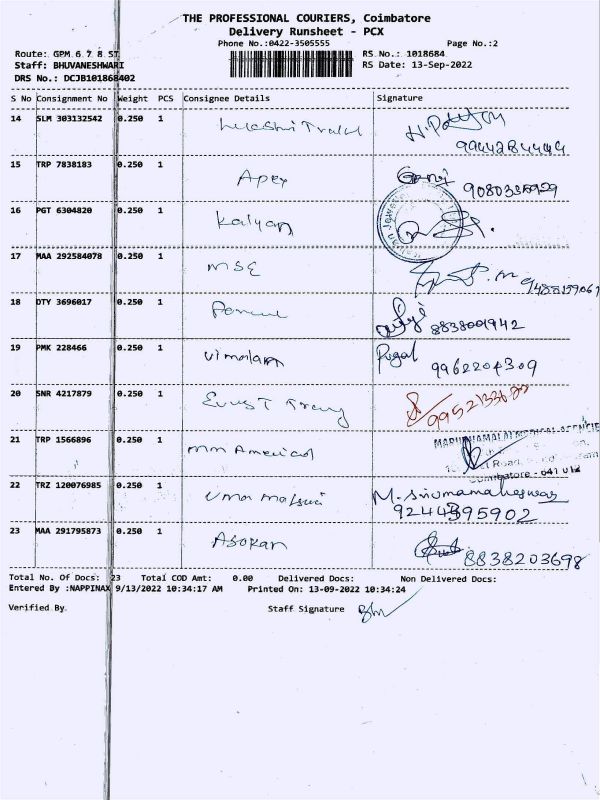 THE PROFESSIONAL COURIERS, Coimbatore
Delivery Runsheet - PCX
Phone No.:0422-3505555 Page No.:2
Route: GPM 6 7 8 ST RS No.: 1018684
Staff: BHUVANESHWARI RS Date: 13-Sep-2022
DRS No.: DCJB101868402
S No Consignment No Weight PCS Consignee Details Signature
14 SLM 303132542 0.250 1
9944284444
15 TRP 7838183 0.250 1 Apex
16 PGT 6304820 0.250 1 Kalyan
17 MAA 292584078 0.250 1 MSE
18 DTY 3696017 0.250 1 8838001942
19 PMK 228466 0.250 1 Vimalam Pugal
9962204309
20 SNR 4217879 0.250 1
21 TRP 1566896 0.250 1
Coimbatore - 641 012
22 TRZ 120076985 0.250 1 M. Sivumamaheswari
23 MAA 291795873 0.250 1 Asokan 8838203698
Total No. Of Docs: 23 Total COD Amt: 0.00 Delivered Docs: Non Delivered Docs:
Entered By :NAPPINAX 9/13/2022 10:34:17 AM Printed On: 13-09-2022 10:34:24
Verified By. Staff Signature